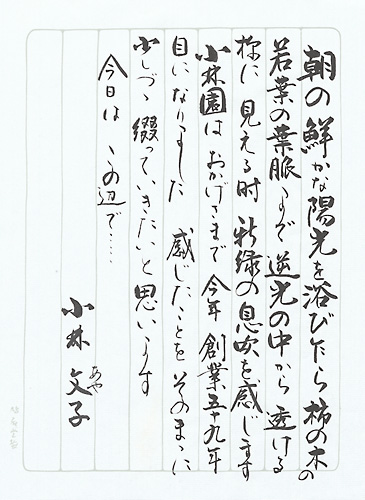 朝の鮮かな陽光を浴びたら柿の木の
若葉の葉脈まで逆光の中から透ける
様に見える時新緑の息吹を感じます
小林園はおかげさまで今年創業五十九年
目になりました 感じたことをそのまゝに
少しづゝ綴っていきたいと思います
今日はこの辺で……
小林文子
あや